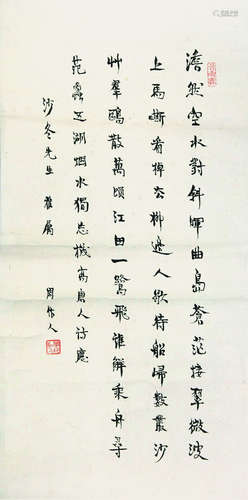 澹然空水對斜暉曲島蒼茫接翠微波
上馬嘶看棹去柳邊人歇待船歸數叢沙
艸羣鷗散萬頃江田一鷺飛誰解乘舟尋
范蠡五湖烟水獨忘機寫唐人詩應
沙冬先生 雅屬
周作人